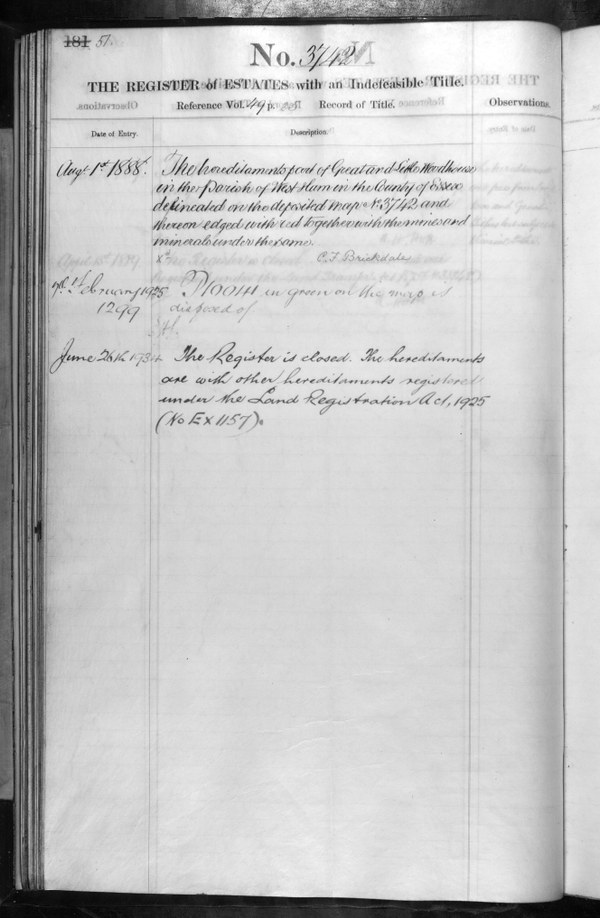 181 51.
No. 3742
THE REGISTER of ESTATES with an Indefeasible Title.
Reference Vol. 49 p. Record of Title. Observations.
Date of Entry. Description.
Augt 1st 1888. The hereditaments part of Great and Little Woodhouse
in the parish of West Ham in the County of Essex
delineated on the deposited map No 3742 and
thereon edged with red together with the mines and
minerals under the same.
C. F. Brickdale
7th February 1925 in green on the map is
1299 disposed of
June 26th 1934 The Register is closed. The hereditaments
are with other hereditaments registered
under the Land Registration Act, 1925
(No Ex 1157).